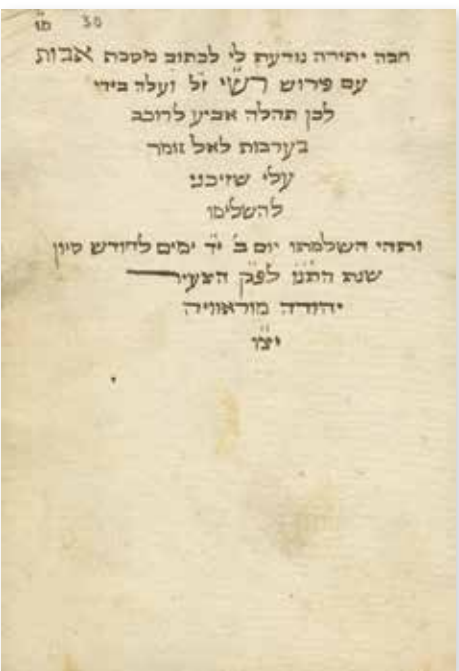 מו 30
חבה יתירה נודעת לי לכתוב מסכת אבות
עם פירוש רש״י ז״ל ועלה בידי
לכן תהלה אביע לרוכב
בערבות לאל גומר
עלי שזיכני
להשלימו
ותהי השלמתו יום ב׳ י״ד ימים לחודש סיון
שנת התנו לפ״ק הצעיר
יהודה מוראוויה
יצ״ו